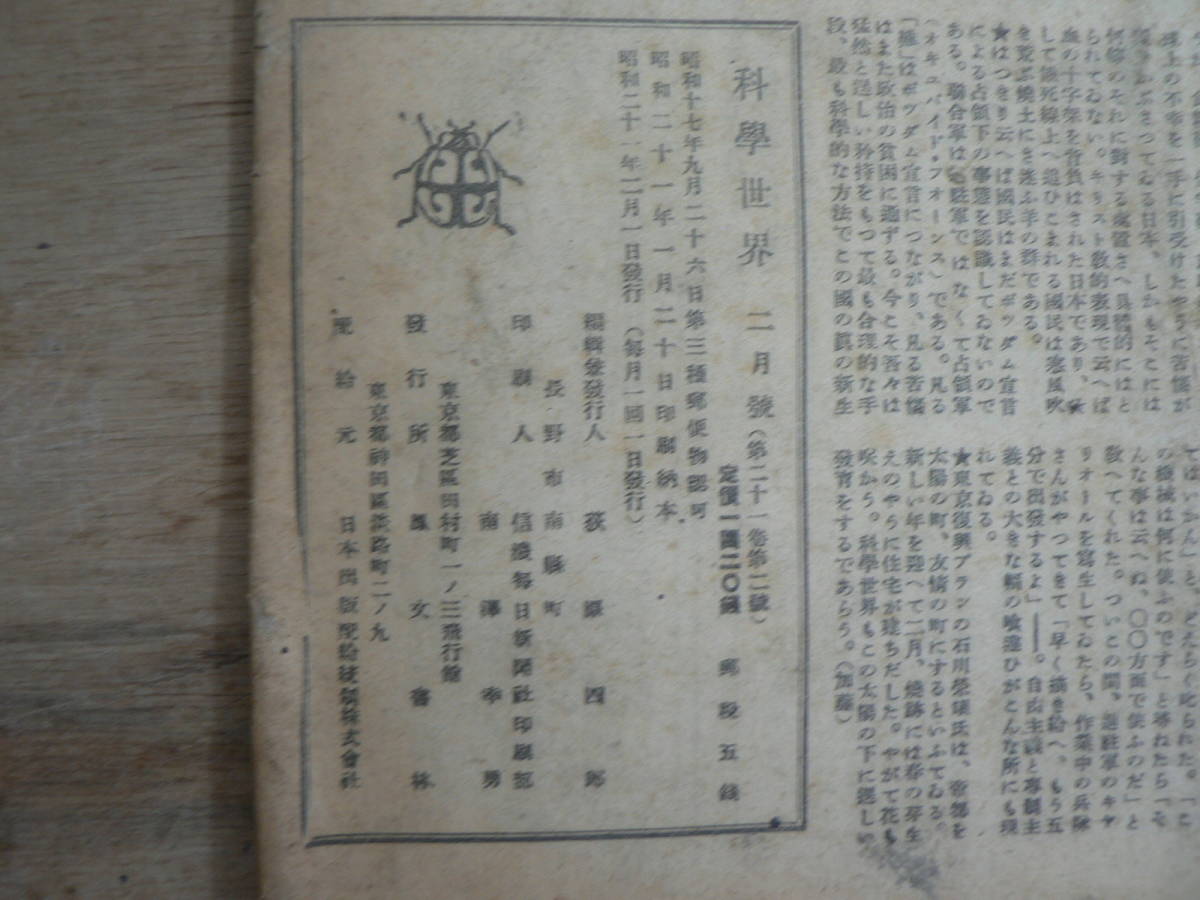 埋上の不幸を一手に引受けたやうに苦惱が
かぶさつてゐる日本、しかもそこには
何等のそれに對する處置さへ具體的にはと
られてゐない。キリスト教的表現で云へば
血の十字架を背負はされた日本であり、★
して餓死線上へ追ひこまれる國民は寒風吹
き荒ぶ燒土にさ迷ふ羊の群である。
★はつきり云へば國民はまだポツダム宣言
による占領下の事態を認識してゐないので
ある。聯合軍は進駐軍ではなくて占領軍
(オキユパイド・フオーシス)である。凡る
「難」はポツダム宣言につながり、凡る苦惱
はまた政治の貧困に通ずる。今こそ吾々は
猛然と逞しい矜持をもつて最も合理的な手
段、最も科學的な方法でこの國の眞の新生
てはいかん」と、どえらく叱られた。「こ
の機械は何に使ふのです」と尋ねたら「そ
んな事は云へぬ、〇〇方面で使ふのだ」と
敎へてくれた。ついこの間、進駐軍のキヤ
リオールを寫生してゐたら、作業中の兵隊
さんがやつてきて「早く描き給へ、もう五
分で出發するよ」――。自由主義と專制主
義との大きな頭の喰違ひがこんな所にも現
れてゐる。
★東京復興プランの石川榮耀氏は、帝都を
太陽の町、友情の町にするといふてゐる。
新しい年を迎へて二月、燒跡には春の芽生
えのやうに住宅が建ちだした。やがて花も
咲かう。科學世界もこの太陽の下に逞しい
發育をするであらう。(加藤)
科學世界 二月號(第二十一卷第二號)
定價一圓二〇錢 郵税五錢
昭和十七年九月二十六日第三種郵便物認可
昭和二十一年一月二十日印刷納本
昭和二十一年二月一日發行(毎月一回一日發行)
編輯兼發行人 荻原四郎
長野市南縣町
印刷人 信濃毎日新聞社印刷部
南澤幸男
東京都芝區田村町一ノ三飛行館
發行所 鳳文書林
東京都神田區淡路町二ノ九
配給元 日本出版配給統制株式會社